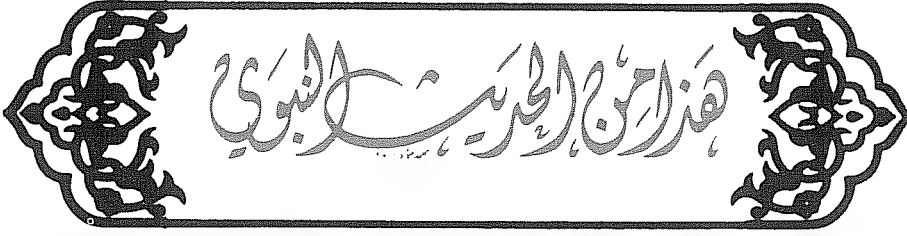 هَذَا مِنَ الحَدِيثِ النَّبَوي